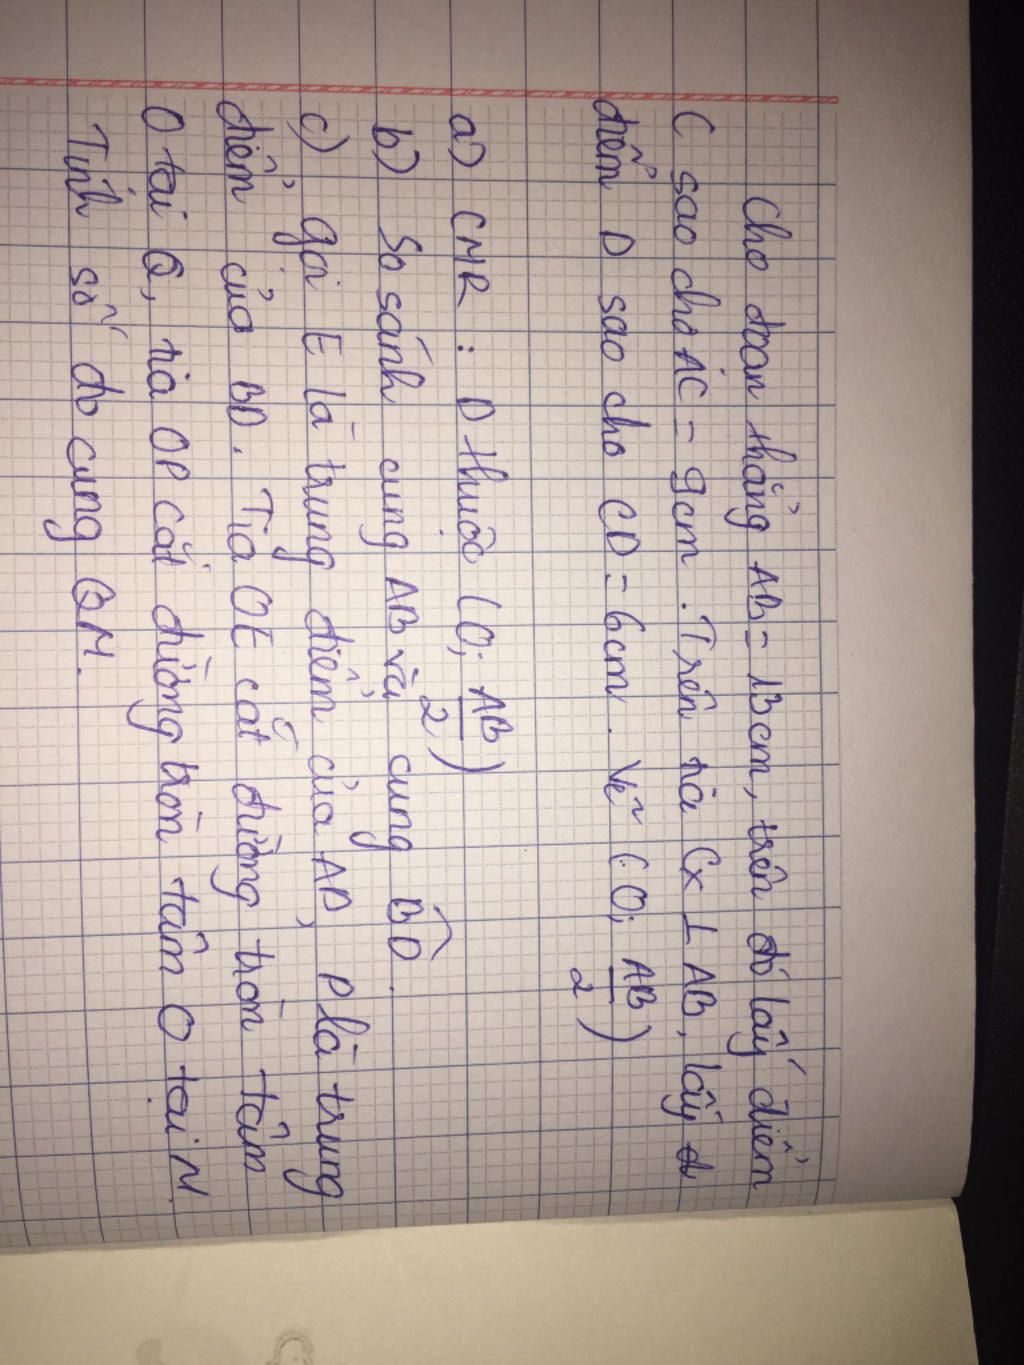 Cho đoạn thẳng AB = 13cm, trên đó lấy điểm
C sao cho AC = 9cm. Trên tia Cx ⊥ AB, lấy đ
điểm D sao cho CD = 6cm. Vẽ (O; AB/2)
a) CMR : D thuộc (O; AB/2)
b) So sánh cung AB và cung BD
c) gọi E là trung điểm của AD, P là trung
điểm của BD. Tia OE cắt đường tròn tâm
O tại Q, tia OP cắt đường tròn tâm O tại N.
Tính số đo cung QN.